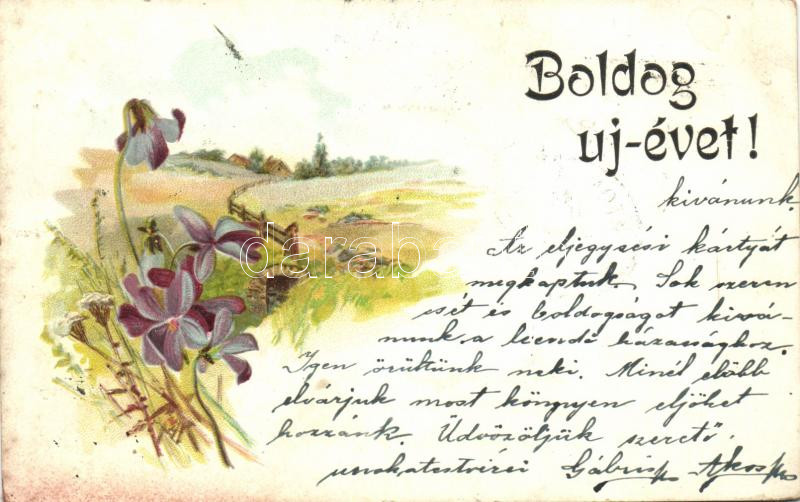 Boldog
uj-évet!
kivánunk.
Az eljegyzési kártyát
megkaptuk. Sok szeren
csét és boldogságot kivá-
nunk a leendő házassághoz.
Igen örültünk neki. Minél előbb
elvárjuk most könnyen eljöhet
hozzánk. Üdvözöljük szerető
unokatestvérei Gábris Ákos
darab
anth